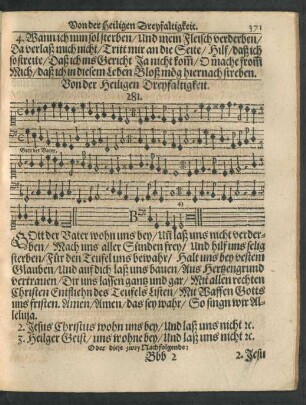 Von der Heiligen Dreyfaltigkeit. 371
4. Wann ich nun sol sterben/ Und mein Fleisch verderben/
Da verlaß mich nicht/ Tritt mir an die Seite/ Hilf/ daß ich
so streite/ Daß ich ins Gericht Ja nicht kom̃/ O mache from̃
Mich/ daß ich in diesem Leben Bloß mög hiernach streben.
Von der Heiligen Dreyfaltigkeit.
281.
Gott der Vater
GOtt der Vater wohn uns bey/ Uñ laß uns nicht verder-
ben/ Mach uns aller Sünden frey/ Und hilf uns selig
sterben/ Für den Teufel uns bewahr/ Halt uns bey vestem
Glauben/ Und auf dich laß uns bauen/ Aus Hertzengrund
vertrauen/ Dir uns lassen gantz und gar/ Mit allen rechten
Christen Entfliehn des Teufels Listen/ Mit Waffen Gotts
uns fristen. Amen/ Amen/ das sey wahr/ So singn wir Al-
leluja.
2. Jesus Christus wohn uns bey/ Und laß uns nicht ꝛc.
3. Heilger Geist/ uns wohne bey/ Und laß uns nicht ꝛc.
Oder diese zwey Nachfolgende:
Bbb 2 2. Jesu